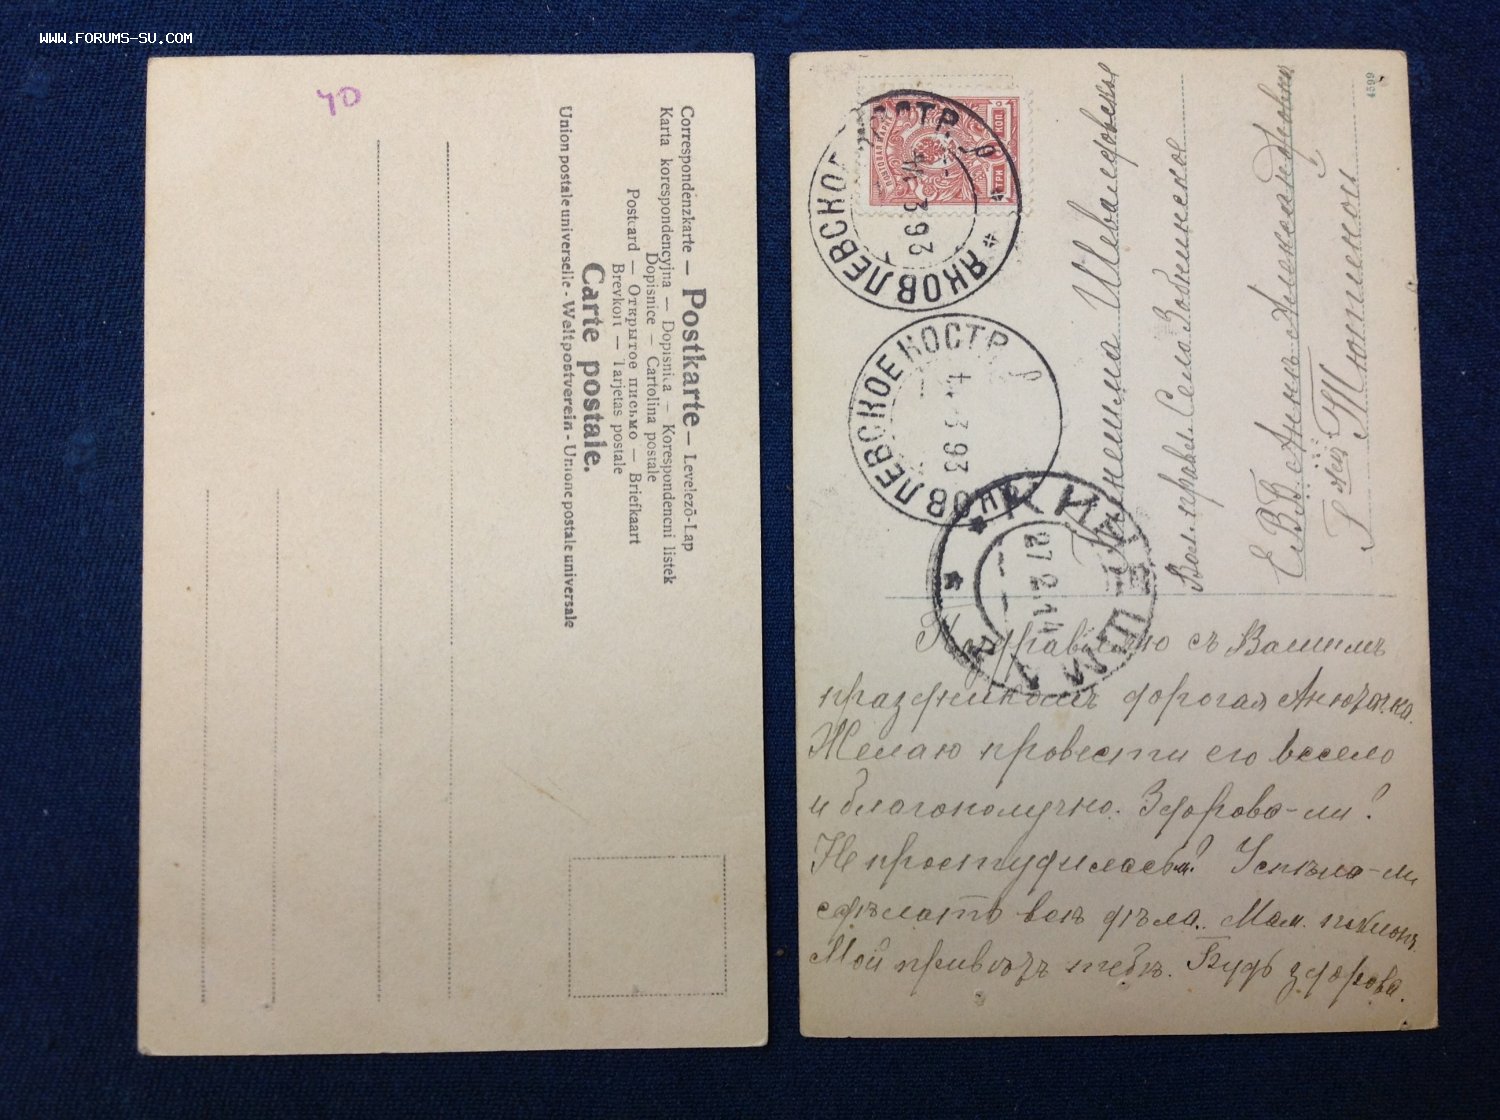 WWW.FORUMS-SU.COM
40
Correspondenzkarte — Postkarte — Levelező-Lap
Karta korespondencyjna — Dopisnica — Korespondencni listek
Dopisnice — Cartolina postale
Postcard — Открытое письмо — Briefkaart
Brevkort — Tarjetas postale
Carte postale.
Union postale universelle - Weltpostverein - Unione postale universale
4599
ПОЧТОВАЯ МАРКА
3 ТРИ КОП. 3
ЯКОВЛЕВСКОЕ КОСТР.
ЯКОВЛЕВСКОЕ КОСТР.
КИНЕШМА
27 2 14
Кинешма
Вол. правл. Село Зобнинское
Е.В.В. Анне Александровне
Г жи Тютиной
Поздравляю съ Вашимъ
праздникомъ дорогая Анюточка.
Желаю провести его весело
и благополучно. Здорова-ли?
Не простудилась? Успѣла-ли
сдѣлать всѣ дѣла. Мам. поклонъ.
Мой привѣтъ тебѣ. Будь здорова.